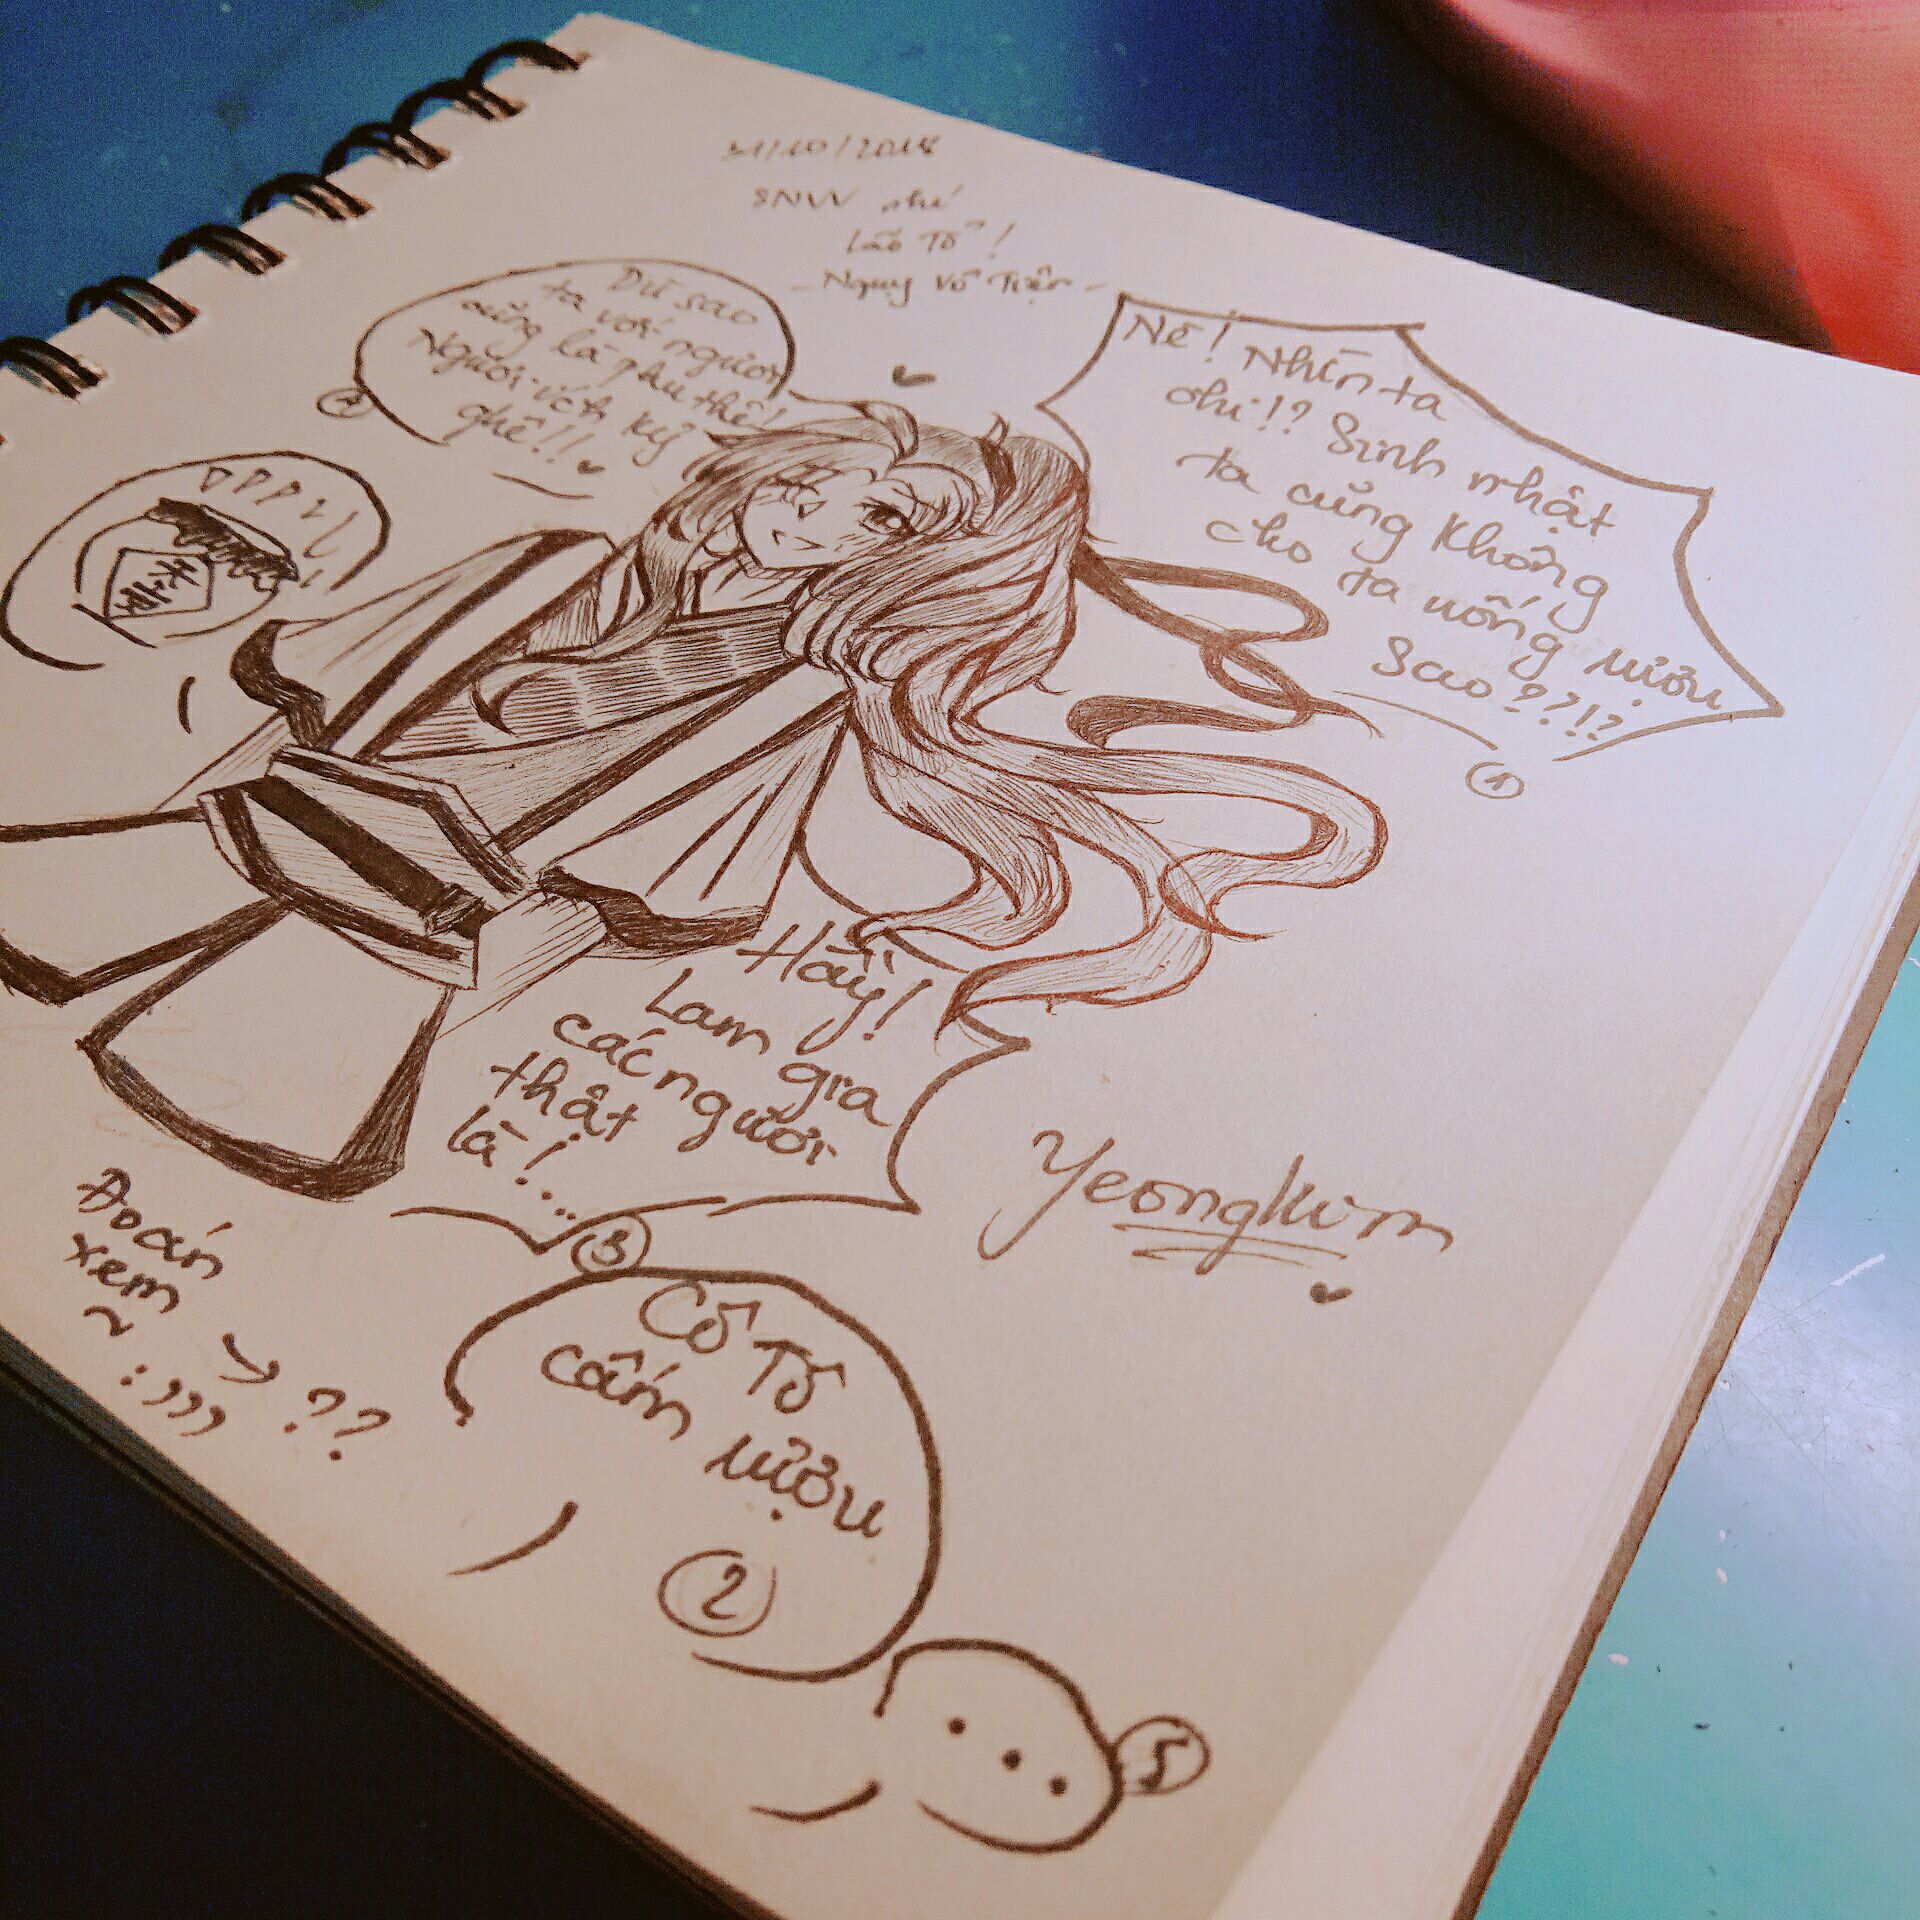 31/10/2018
SNVV nhé
Lão Tổ!
- Ngụy Vô Tiện -
Dù sao
ta với ngươi
cũng là phu thê!
Ngươi ích kỷ
ghê!!
4
Nè! Nhìn ta
chi!? Sinh nhật
ta cũng không
cho ta uống rượu
sao??!?
1
Hầy!
Lam gia
các ngươi
thật
là!...
3
YeongKim
Đoán
xem
~
:)))
→ ??
Cô Tô
cấm rượu
2
...
5